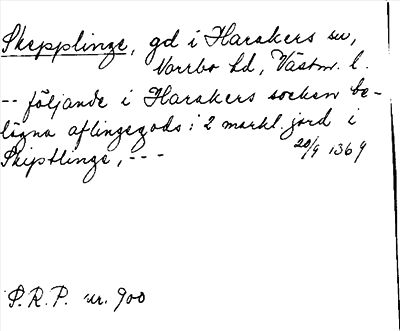 Skepplinge, gd i Harakers sn,
Norrbo hd, Västm. l.
-- följande i Harakers socken be-
lägna aflingegods: 2 markl. jord i
Skiptlinge, ---
20/9 1369
S.R.P. nr. 900